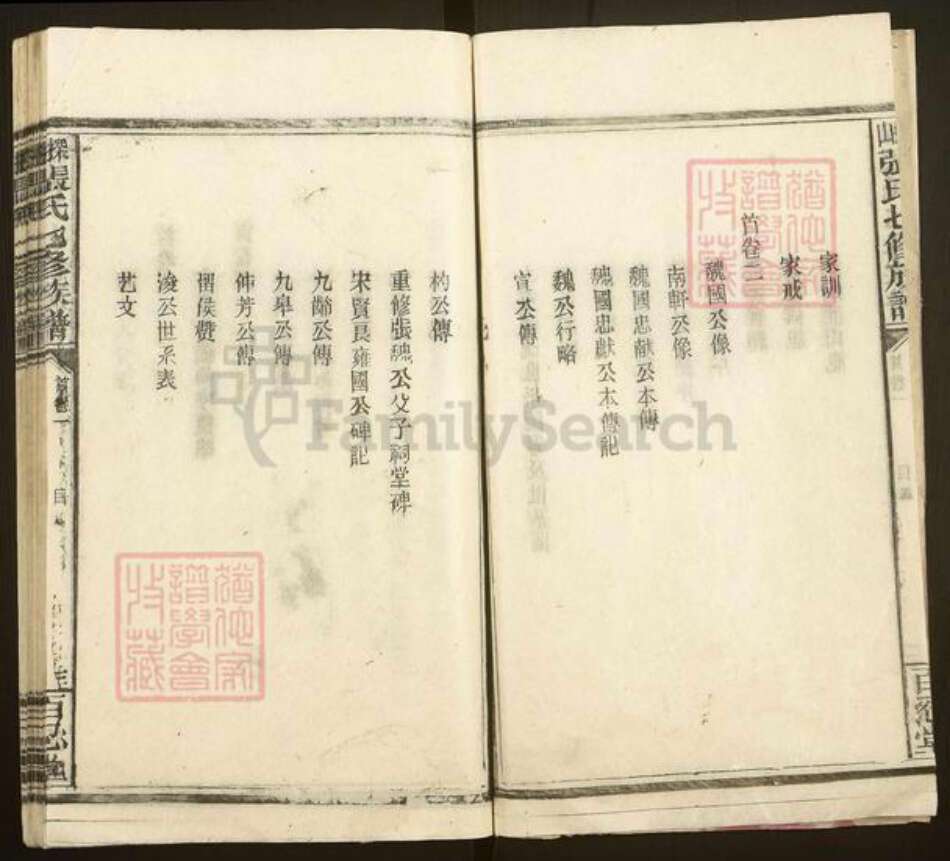 張氏七修族譜
家訓
家戒
首卷二
魏國公像
南軒公像
魏國忠献公本傳
魏國忠獻公本傳記
魏公行略
宣公傳
杓公傳
重修張魏公父子祠堂碑
宋賢良雍國公碑記
九齡公傳
九皋公傳
仲芳公傳
畱侯赞
浚公世系表
艺文
張氏七修族譜
首卷一
目
百忍堂
譜學會
收藏
FamilySearch